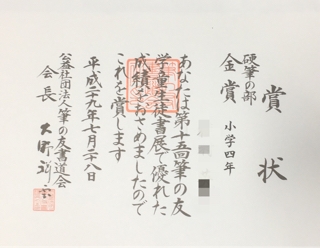 賞状
硬筆の部
金賞 小学四年
あなたは第十五回筆の友
学童生徒書展で優れた
成績をおさめましたので
これを賞します
平成二十九年七月二十八日
公益社団法人筆の友書道会
会長